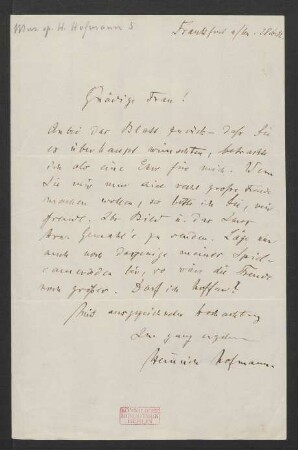 Mus. ep. H. Hofmann 5
Frankfurt a/M.
Gnädige Frau!
Anbei das Blatt zurück – daß Sie
es überhaupt wünschten, betrachte
ich als eine Ehre für mich. Wenn
Sie mir nun eine recht große Freude
machen wollen, so bitte ich Sie, mir
Ihr Bild u. das Ihres
Gemahl's zu senden. Läge
auch noch dasjenige meiner Spiel-
cameraden bei, so wäre die Freude
noch größer. Darf ich hoffen?
Mit ausgezeichneter Hochachtung
Ihr ganz ergebener
Heinrich Hofmann.
KÖNIGLICHE
BIBLIOTHEK
BERLIN